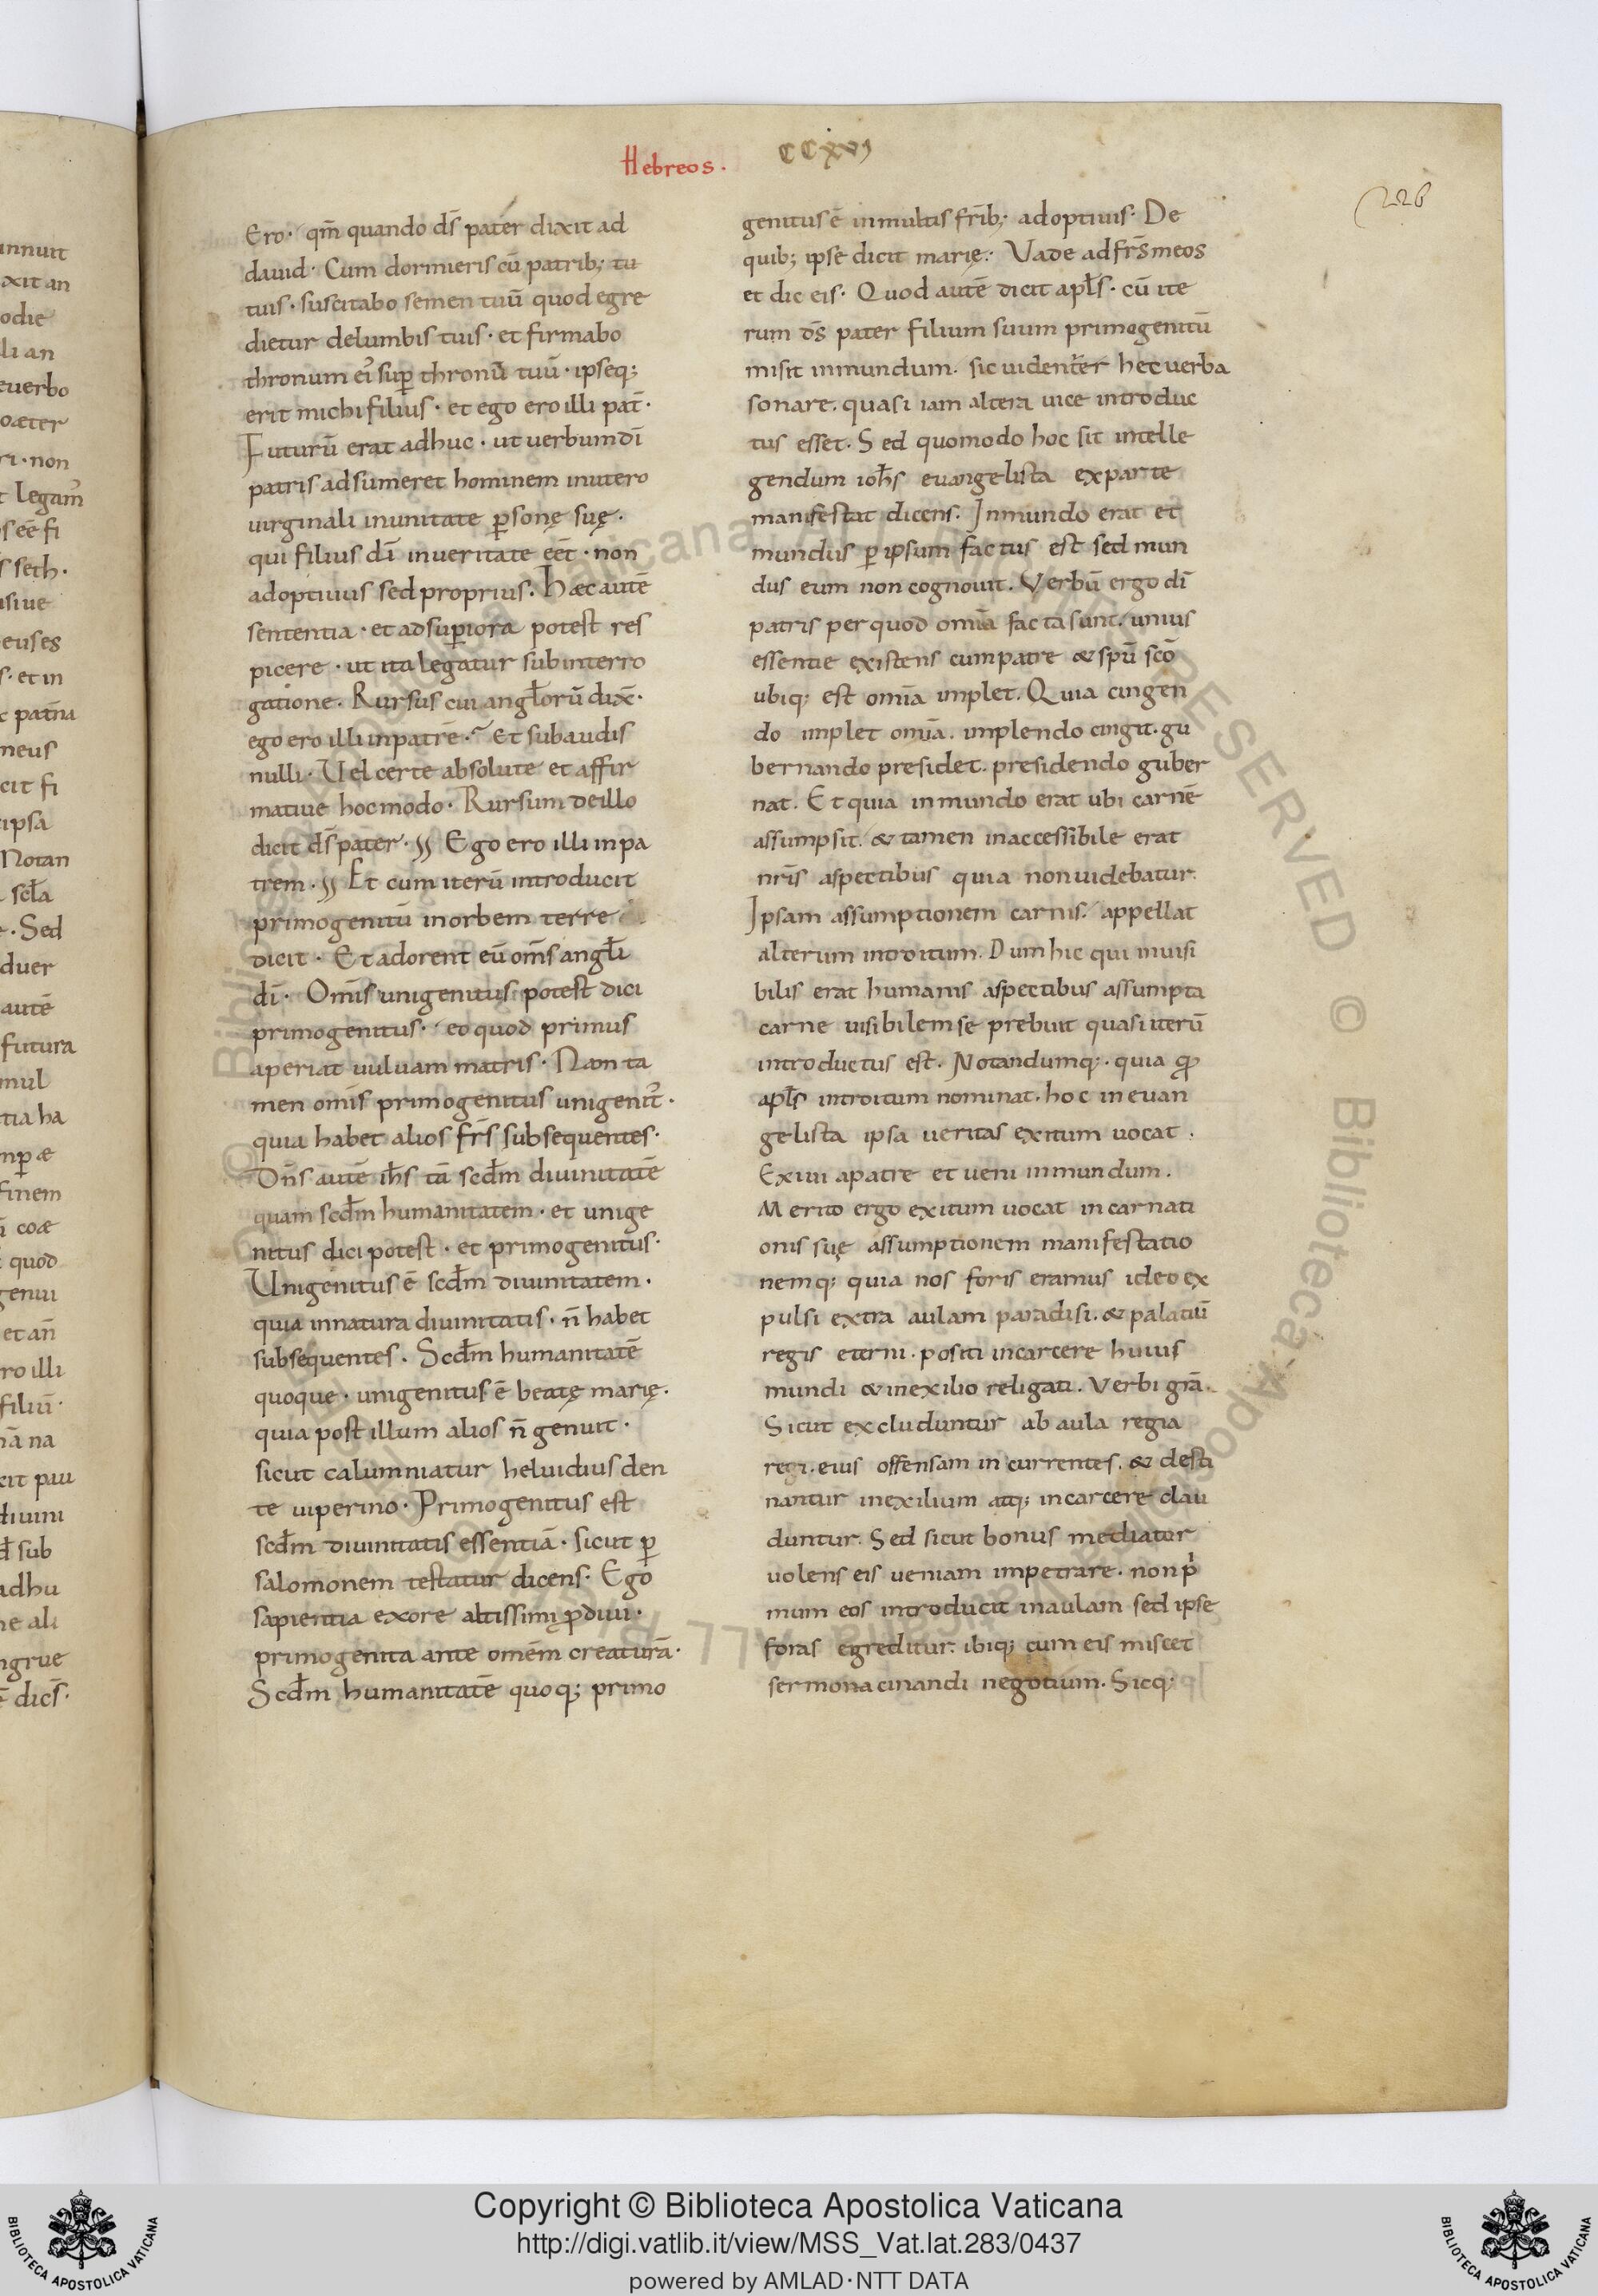 Hebreos.
ccxvj
226
Ero· qm̄ quando ds̄ pater dixit ad
dauid· Cum dormieris cū patrib; tu
tuis· suscitabo semen tuū quod egre
dietur delumbis tuis· et firmabo
thronum ei᾿ sup̄ thronū tuū· ipseq;
erit michi filius· et ego ero illi pat̄·
Futurū erat adhuc· ut uerbum dī
patris adsumeret hominem inutero
uirginali inunitate ꝑsonę suę.
qui filius dī inueritate eēt· non
adoptiuus sed proprius. Hæc autē
sententia· et adsuꝑiora potest res
picere· ut ita legatur subinterro
gatione. Rursus cui angł̄orū dix̄·
ego ero illi inpatrē·~ Et subaudis
nulli· Uel certe absolute et affir
matiue hocmodo· Rursum deillo
dicit ds̄ pater· Ego ero illi inpa
trem· Et cum iterū introducit
primogenitū inorbem terre
dicit· Et adorent eū om̄s angł̄i
dī· Omīs unigenitus potest dici
primogenitus· eo quod primus
aperiat uuluam matris· Nam ta
men omīs primogenitus unigenit᾿·
quia habet alios fr̄s subsequentes·
Dn̄s autē ih̄s tā scd̄m diuinitatē
quam scd̄m humanitatem· et unige
nitus dici potest· et primogenitus·
Unigenitus ē scd̄m diuinitatem·
quia innatura diuinitatis· n̄ habet
subsequentes. Scd̄m humanitatē
quoque· unigenitus ē beatę marię·
quia post illum alios n̄ genuit·
sicut calumniatur heluidius den
te uiperino· Primogenitus est
scd̄m diuinitatis essentiā· sicut ꝑ
salomonem testatur dicens· Ego
sapientia exore altissimi ꝓdiui·
primogenita ante omēm creaturā·
Scd̄m humanitatē quoq; primo
genitus ē inmultis fr̄ib; adoptiuis· De
quib; ipse dicit marię· Vade ad fr̄s meos
et dic eis· Quod autē dicit apł̄s· cū ite
rum ds̄ pater filium suum primogenitū
misit inmundum· sic uident̄er hec uerba
sonare. quasi iam altera uice introduc
tus esset. Sed quomodo hoc sit intelle
gendum ioh̄s euangelista exparte
manifestat dicens. Inmundo erat et
mundus ꝑ ipsum factus est sed mun
dus eum non cognouit. Verbū ergo dī
patris per quod omīa facta sunt. unius
essentie existens cum patre & spū scō
ubiq; est omīa implet. Quia cingen
do implet omīa. implendo cingit. gu
bernando presidet. presidendo guber
nat. Et quia inmundo erat ubi carnē
assumpsit. & tamen inaccessibile erat
nr̄is aspectibus quia non uidebatur.
Ipsam assumptionem carnis. appellat
alterum introitum. Dum hic qui inuisi
bilis erat humanis aspectibus assumpta
carne uisibilem se prebuit quasi iterū
introductus est. Notandumq;. quia ꝙ
apł̄s introitum nominat. hoc in euan
gelista ipsa ueritas exitum uocat.
Exiui apatre et ueni inmundum.
Merito ergo exitum uocat incarnati
onis suę assumptionem manifestatio
nemq; quia nos foris eramus ideo ex
pulsi extra aulam paradisi. & palatiū
regis eterni. positi incarcere huius
mundi & inexilio religati. Verbi grā.
Sicut excluduntur ab aula regia
regi. eius offensam incurrentes. & desti
nantur inexilium atq; incarcere clau
duntur. Sed sicut bonus mediator
uolens eis ueniam impetrare. non p̄i
mum eos introducit inaulam sed ipse
foras egreditur. ibiq; cum eis miscet
sermonacinandi negotium. Sicq;
Copyright © Biblioteca Apostolica Vaticana
http://digi.vatlib.it/view/MSS_Vat.lat.283/0437
powered by AMLAD·NTT DATA
BIBLIOTECA APOSTOLICA VATICANA
BIBLIOTECA APOSTOLICA VATICANA